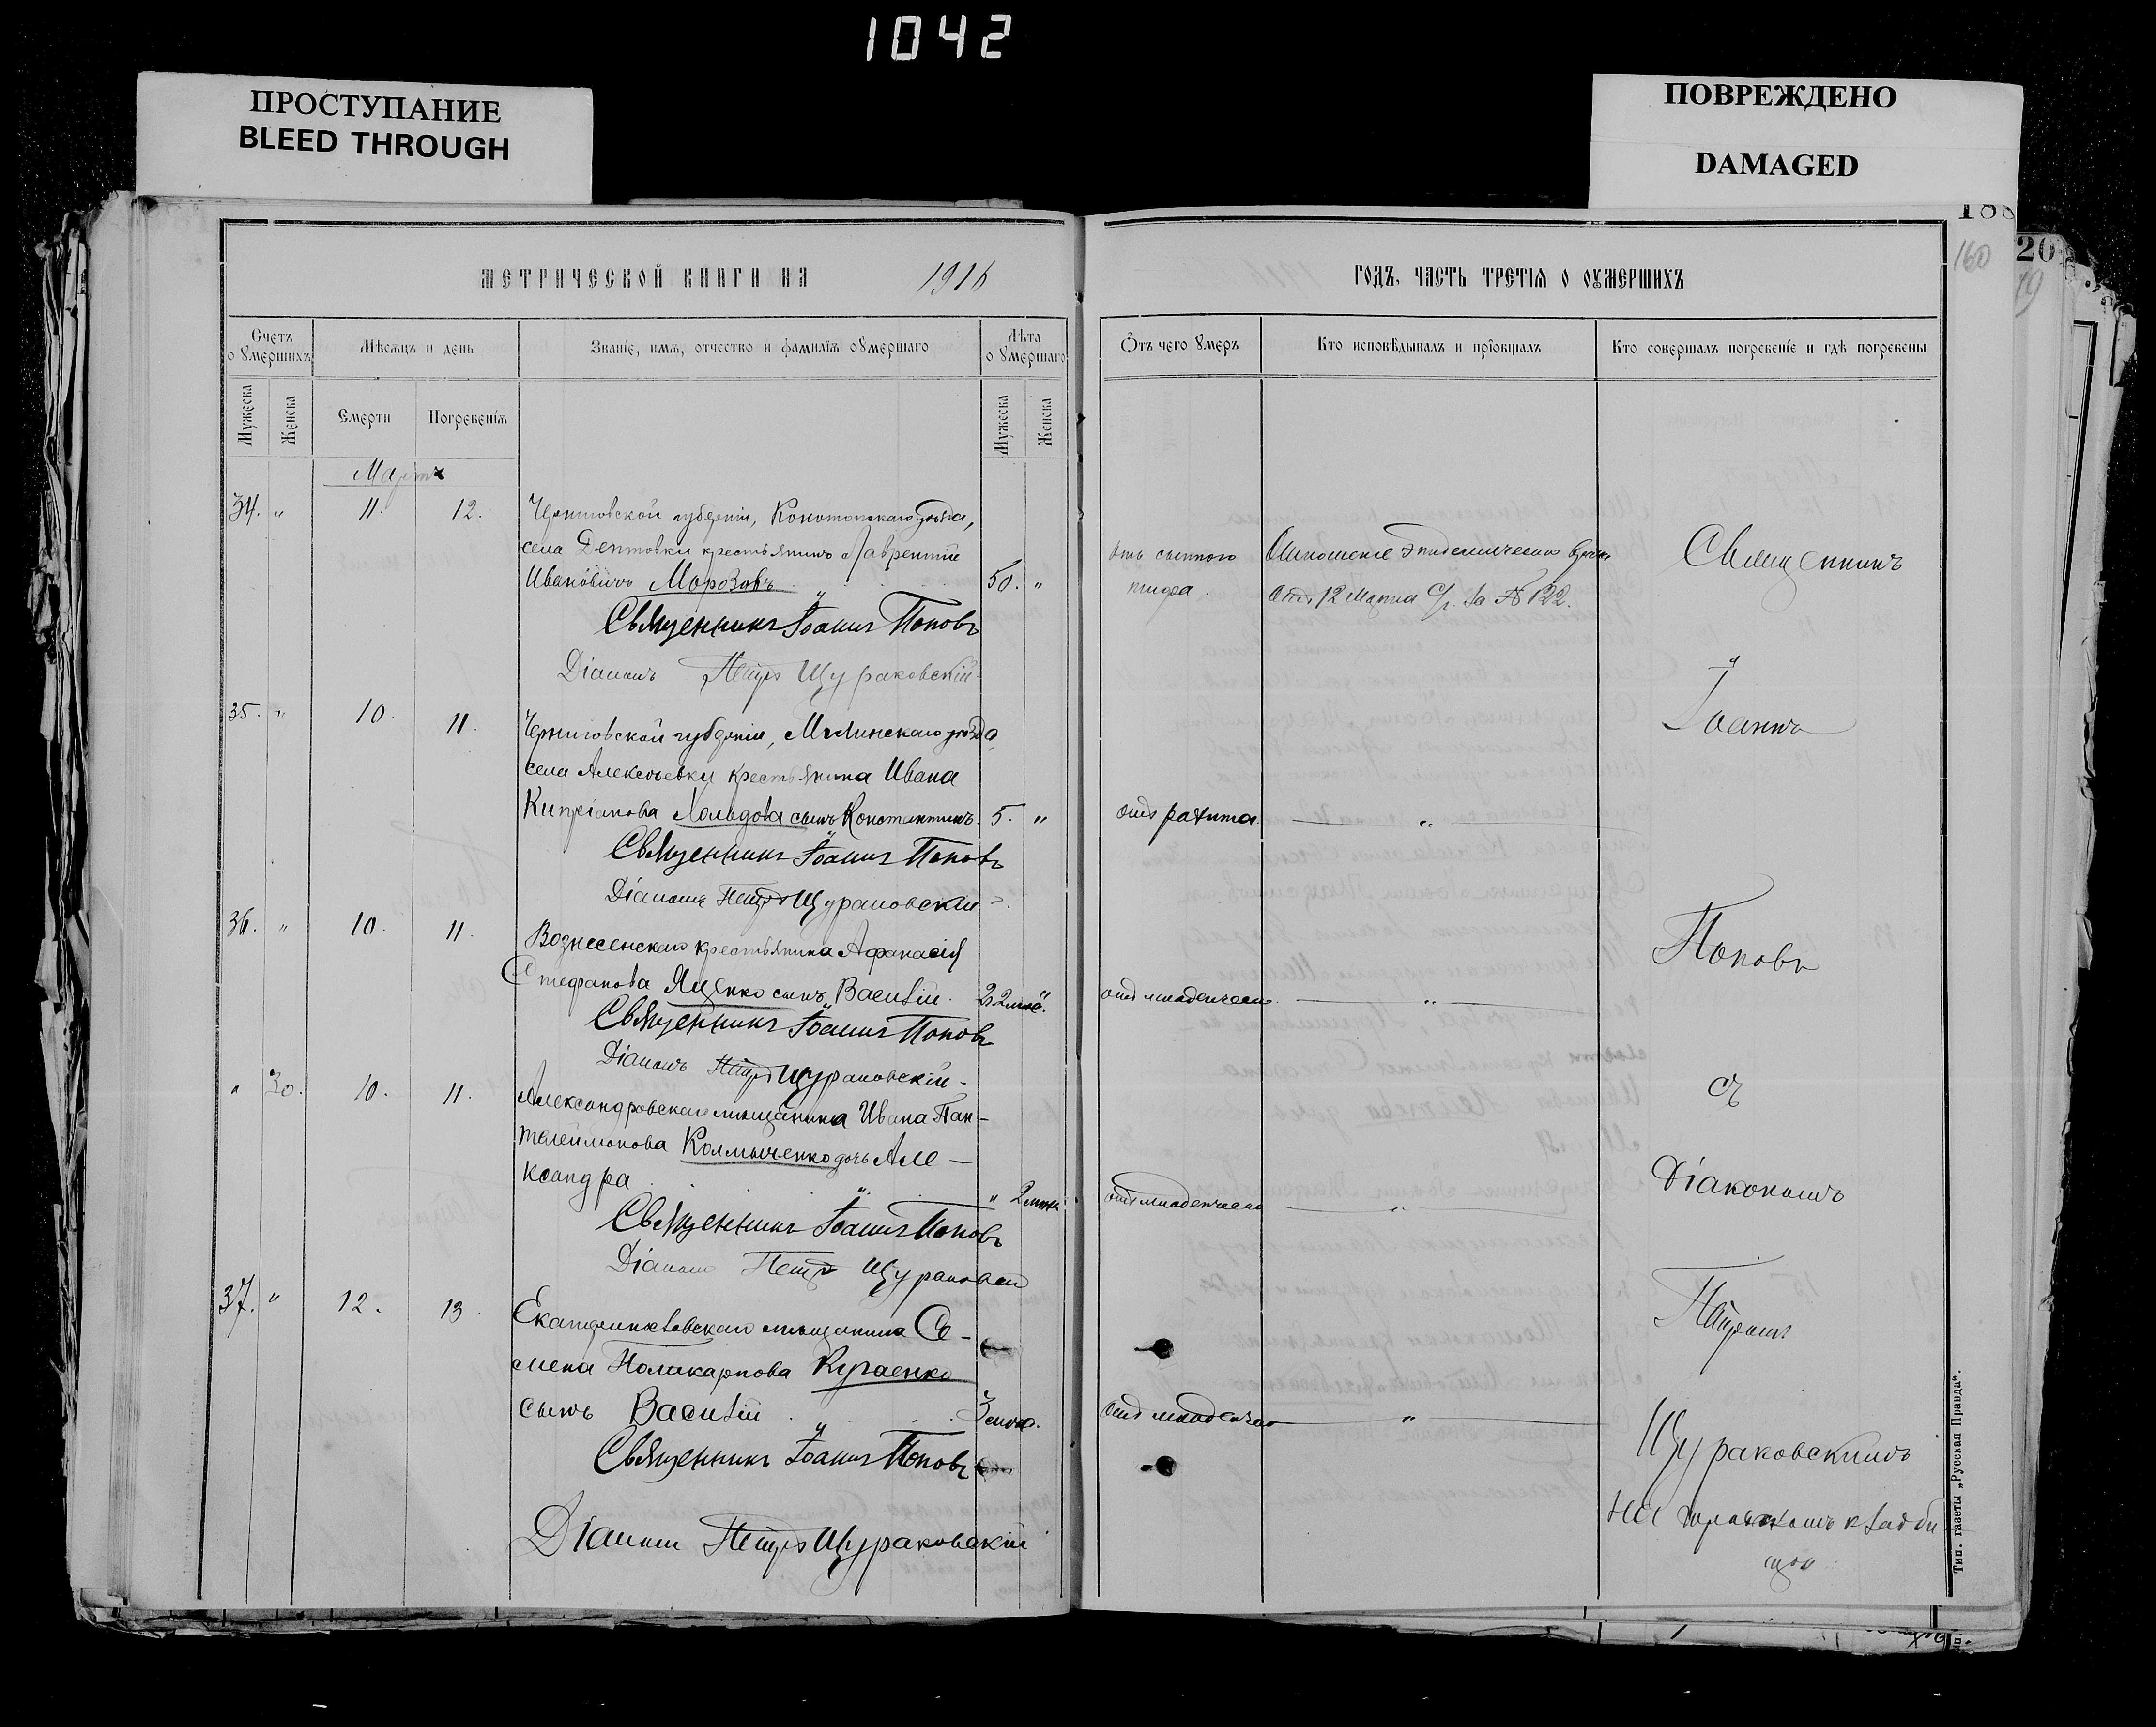 1042
ПРОСТУПАНИЕ
BLEED THROUGH
ПОВРЕЖДЕНО
DAMAGED
188
160
20
МЕТРИЧЕСКОЙ КНИГИ НА 1916
ГОДЪ, ЧАСТЬ ТРЕТІЯ О ОУМЕРШИХЪ
Счетъ о умершихъ
Мѣсяцъ и день
Званіе, имя, отчество и фамилія оумершаго
Лѣта оумершаго
Отъ чего умеръ
Кто исповѣдывалъ и пріобщалъ
Кто совершалъ погребеніе и гдѣ погребены
Мужеска
Женска
Смерти
Погребенія
Мужеска
Женска
Мартъ
34. " 11. 12. Черниговской губерніи, Конотопскаго уѣзда,
села Дептовки крестьянинъ Лаврентій
Ивановичъ Морозовъ 50. "
отъ сыпного
тифа.
Отношеніе Эпидемическаго
отъ 12 Марта с/г. за № 122.
Священникъ Іоаннъ Поповъ
Діаконъ Петръ Щураковскій
35. " 10. 11. Черниговской губерніи, Мглинскаго уѣзда
села Алексѣевки крестьянина Ивана
Кипріанова сынъ Константинъ 5. " отъ рахита "
Священникъ Іоаннъ Поповъ
Діаконъ Петръ Щураковскій
36. " 10. 11. Вознесенскаго крестьянина Афанасія
Стефанова Яценко сынъ Василій отъ младенческ. "
Священникъ Іоаннъ Поповъ
Діаконъ Петръ Щураковскій
" 30. 10. 11. Александровскаго мѣщанина Ивана Пан-
телеимонова Колмыченко дочь Але-
ксандра " 2 отъ младенческ. "
Священникъ Іоаннъ Поповъ
Діаконъ Петръ Щураковскій
37. " 12. 13. Екатеринославскаго мѣщанина Се-
мена Поликарпова
сынъ Василій 3 отъ младенческ. "
Священникъ Іоаннъ Поповъ
Діаконъ Петръ Щураковскій
Священникъ
Іоаннъ
Поповъ
съ
Діакономъ
Петромъ
Щураковскимъ
на городскомъ кладби
щѣ
Тип. газеты „Русская Правда“.